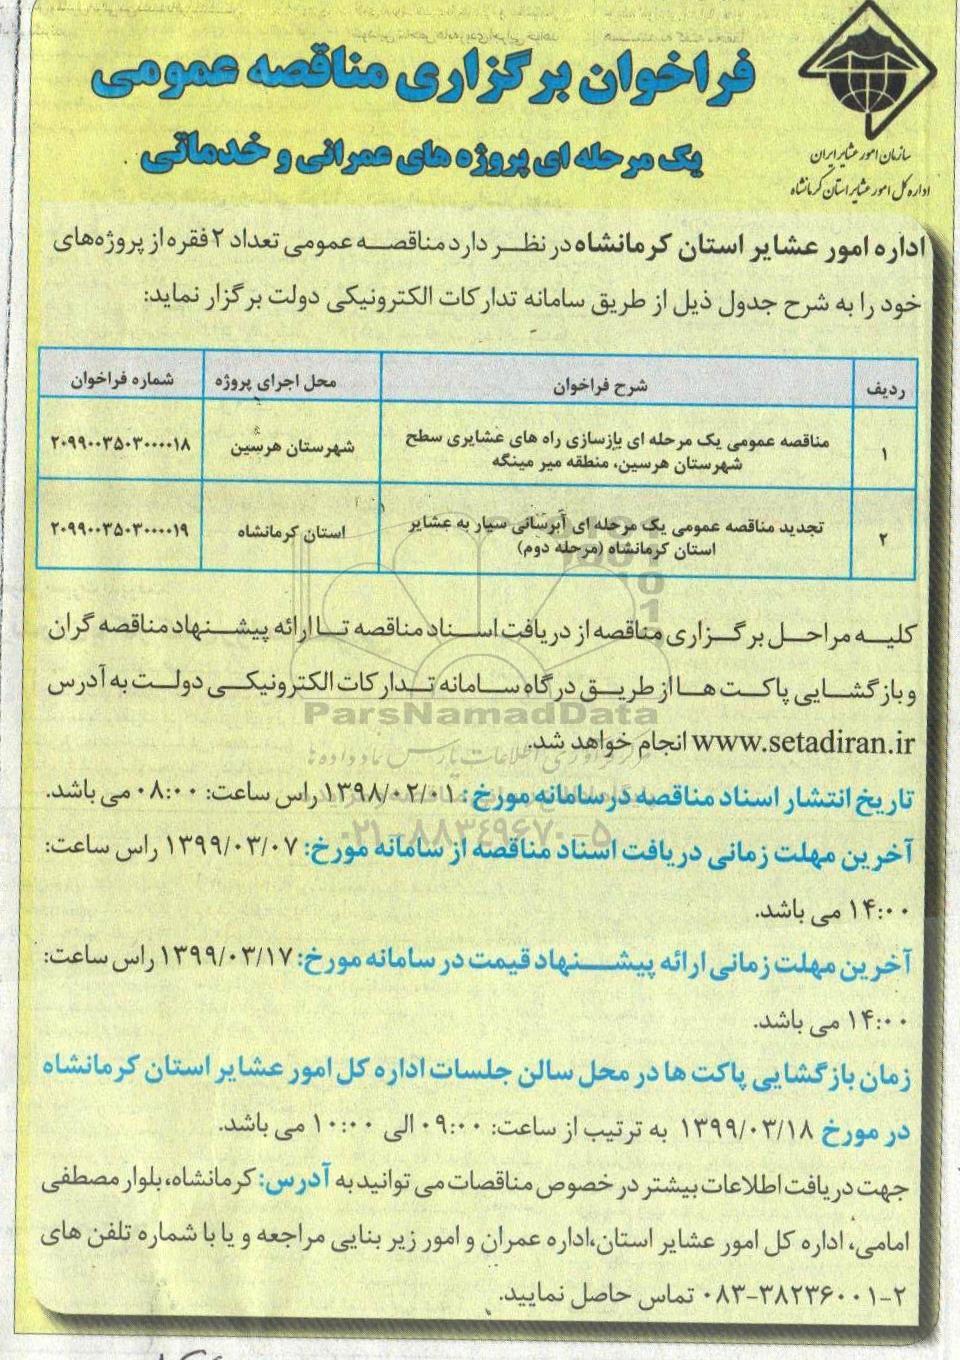 فراخوان برگزاری مناقصه عمومی
یک مرحله ای پروژه های عمرانی و خدماتی
سازمان امور عشایر ایران
اداره کل امور عشایر استان کرمانشاه
اداره امور عشایر استان کرمانشاه در نظر دارد مناقصه عمومی تعداد ۲ فقره از پروژه‌های
خود را به شرح جدول ذیل از طریق سامانه تدارکات الکترونیکی دولت برگزار نماید:
ردیف شرح فراخوان محل اجرای پروژه شماره فراخوان
۱ مناقصه عمومی یک مرحله ای بازسازی راه های عشایری سطح
شهرستان هرسین، منطقه میر مینگه شهرستان هرسین ۲۰۹۹۰۰۳۵۰۳۰۰۰۰۱۸
۲ تجدید مناقصه عمومی یک مرحله ای آبرسانی سیار به عشایر
استان کرمانشاه (مرحله دوم) استان کرمانشاه ۲۰۹۹۰۰۳۵۰۳۰۰۰۰۱۹
کلیه مراحل برگزاری مناقصه از دریافت اسناد مناقصه تا ارائه پیشنهاد مناقصه گران
و بازگشایی پاکت ها از طریق درگاه سامانه تدارکات الکترونیکی دولت به آدرس
ParsNamadData
www.setadiran.ir انجام خواهد شد.
تاریخ انتشار اسناد مناقصه در سامانه مورخ: ۱۳۹۸/۰۲/۰۱ راس ساعت: ۰۸:۰۰ می باشد.
۰۲۱-۸۸۳۴۹۶۷۰-۵
آخرین مهلت زمانی دریافت اسناد مناقصه از سامانه مورخ: ۱۳۹۹/۰۳/۰۷ راس ساعت:
۱۴:۰۰ می باشد.
آخرین مهلت زمانی ارائه پیشنهاد قیمت در سامانه مورخ: ۱۳۹۹/۰۳/۱۷ راس ساعت:
۱۴:۰۰ می باشد.
زمان بازگشایی پاکت ها در محل سالن جلسات اداره کل امور عشایر استان کرمانشاه
در مورخ ۱۳۹۹/۰۳/۱۸ به ترتیب از ساعت: ۰۹:۰۰ الی ۱۰:۰۰ می باشد.
جهت دریافت اطلاعات بیشتر در خصوص مناقصات می توانید به آدرس: کرمانشاه، بلوار مصطفی
امامی، اداره کل امور عشایر استان، اداره عمران و امور زیر بنایی مراجعه و یا با شماره تلفن های
۰۸۳-۳۸۲۳۶۰۰۱-۲ تماس حاصل نمایید.